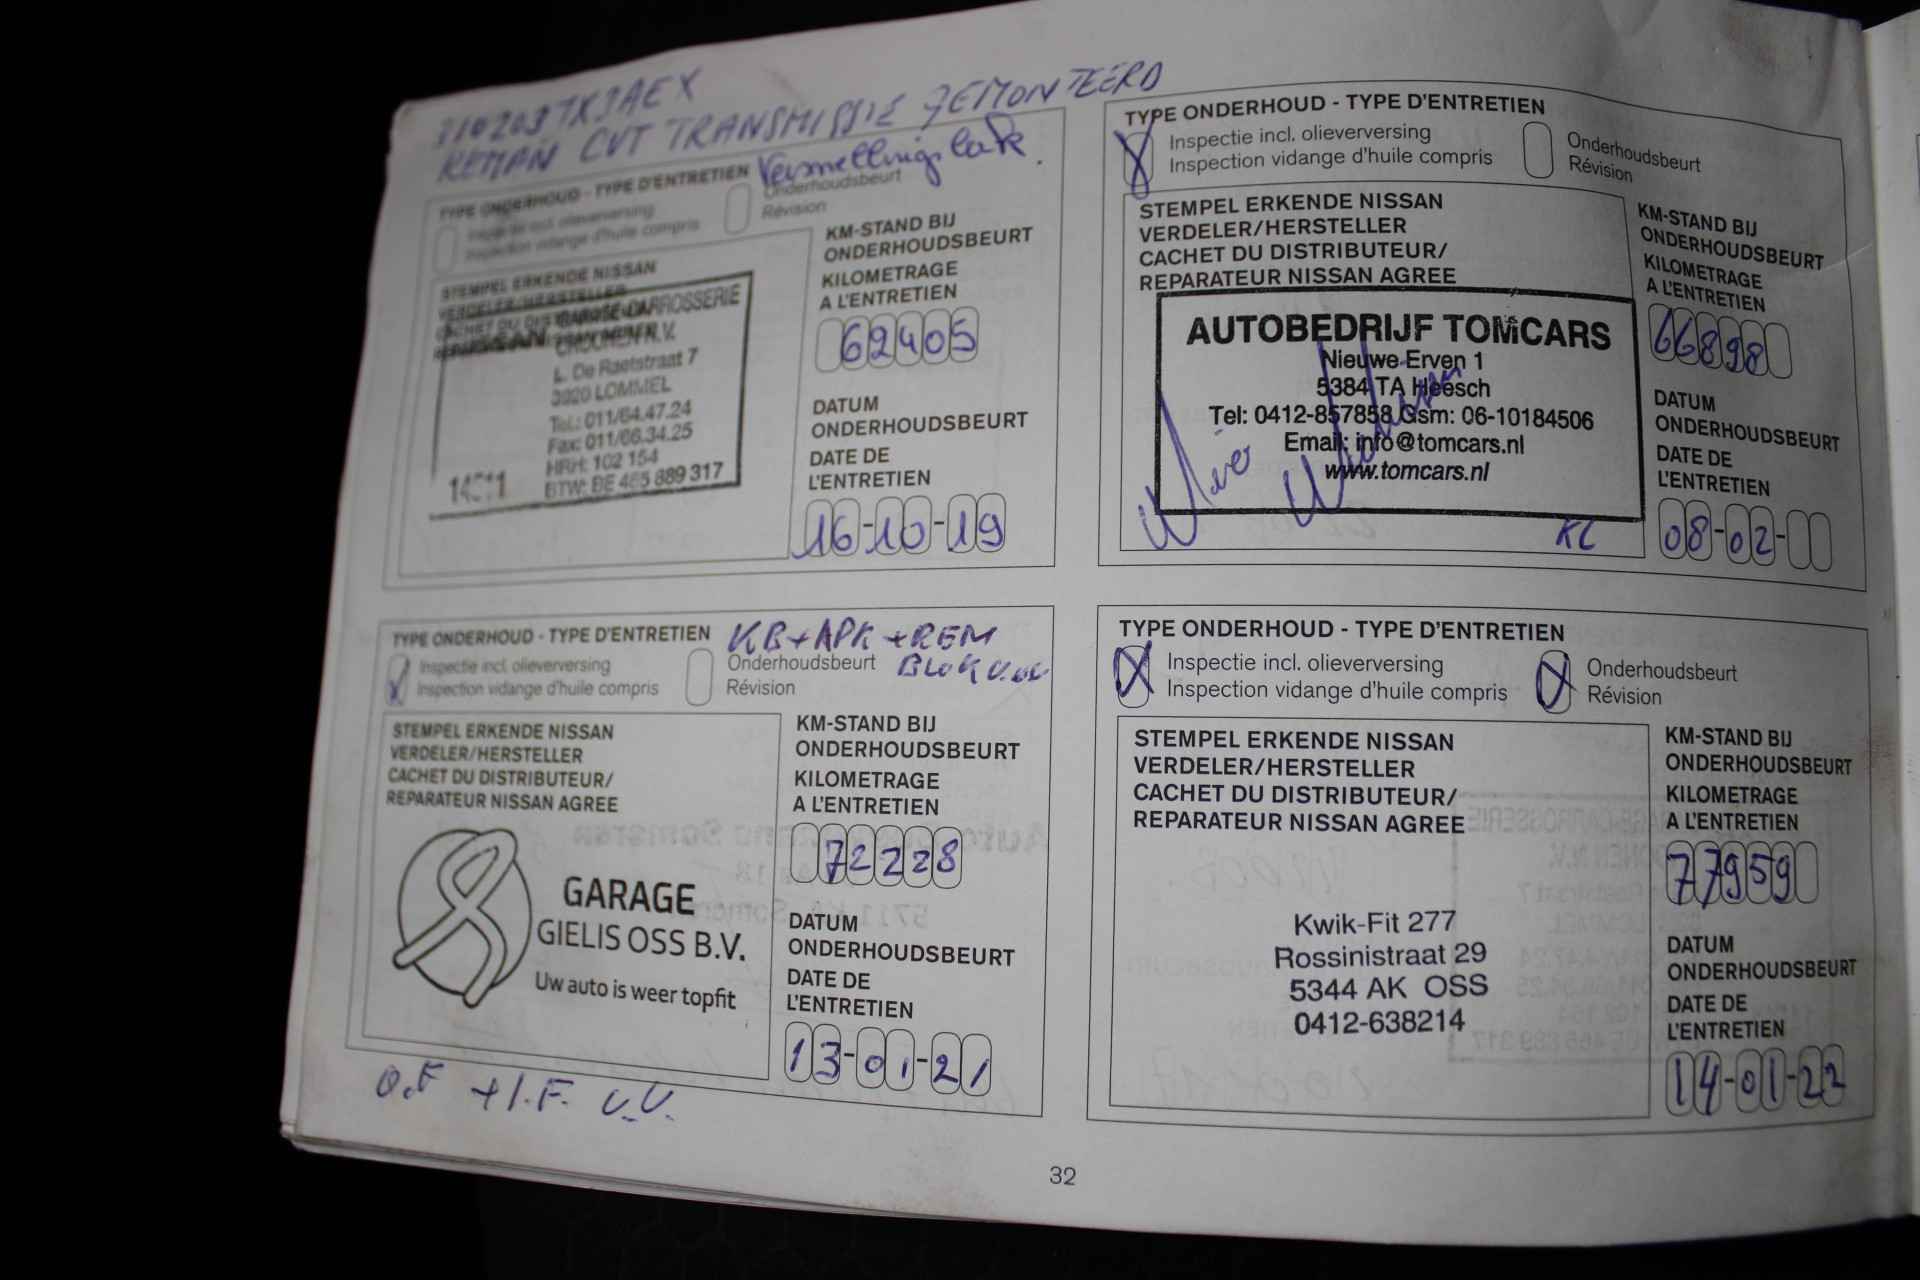 REMAN CVT TRANSMISSIE GEMONTEERD
TYPE ONDERHOUD - TYPE D'ENTRETIEN
Versnellingsbak.
Inspectie incl. olieverversing
Inspection vidange d'huile compris
Onderhoudsbeurt
Révision
STEMPEL ERKENDE NISSAN
VERDELER/HERSTELLER
GARAGE-CARROSSERIE
L. De Raetstraat 7
3920 LOMMEL
Tel.: 011/64.47.24
Fax: 011/66.34.25
HRH: 102 154
BTW: BE 465 889 317
KM-STAND BIJ
ONDERHOUDSBEURT
KILOMETRAGE
A L'ENTRETIEN
62405
DATUM
ONDERHOUDSBEURT
DATE DE
L'ENTRETIEN
16-10-19
TYPE ONDERHOUD - TYPE D'ENTRETIEN
Inspectie incl. olieverversing
Inspection vidange d'huile compris
Onderhoudsbeurt
Révision
STEMPEL ERKENDE NISSAN
VERDELER/HERSTELLER
CACHET DU DISTRIBUTEUR/
REPARATEUR NISSAN AGREE
AUTOBEDRIJF TOMCARS
Nieuwe Erven 1
5384 TA Heesch
Tel: 0412-857858 Gsm: 06-10184506
Email: info@tomcars.nl
www.tomcars.nl
KM-STAND BIJ
ONDERHOUDSBEURT
KILOMETRAGE
A L'ENTRETIEN
66898
DATUM
ONDERHOUDSBEURT
DATE DE
L'ENTRETIEN
08-02-
TYPE ONDERHOUD - TYPE D'ENTRETIEN
KB+APK+REM
BLOK
Inspectie incl. olieverversing
Inspection vidange d'huile compris
Onderhoudsbeurt
Révision
STEMPEL ERKENDE NISSAN
VERDELER/HERSTELLER
CACHET DU DISTRIBUTEUR/
REPARATEUR NISSAN AGREE
GARAGE
GIELIS OSS B.V.
Uw auto is weer topfit
KM-STAND BIJ
ONDERHOUDSBEURT
KILOMETRAGE
A L'ENTRETIEN
72228
DATUM
ONDERHOUDSBEURT
DATE DE
L'ENTRETIEN
13-01-21
O.F +I.F. V.V.
TYPE ONDERHOUD - TYPE D'ENTRETIEN
Inspectie incl. olieverversing
Inspection vidange d'huile compris
Onderhoudsbeurt
Révision
STEMPEL ERKENDE NISSAN
VERDELER/HERSTELLER
CACHET DU DISTRIBUTEUR/
REPARATEUR NISSAN AGREE
Kwik-Fit 277
Rossinistraat 29
5344 AK OSS
0412-638214
KM-STAND BIJ
ONDERHOUDSBEURT
KILOMETRAGE
A L'ENTRETIEN
77959
DATUM
ONDERHOUDSBEURT
DATE DE
L'ENTRETIEN
14-01-22
32